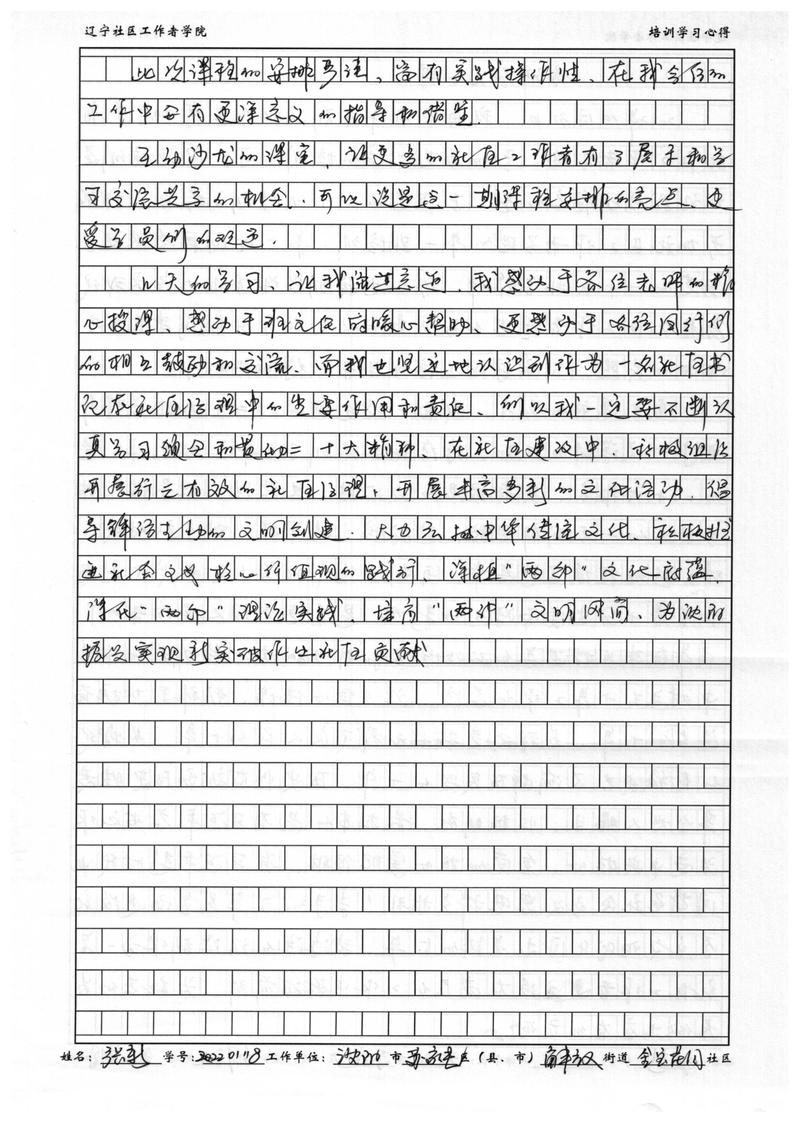 辽宁社区工作者学院 培训学习心得
此次课程的安排灵活、富有实践操作性、在我今后的
工作中会有更深意义的指导和借鉴.
互动沙龙的课堂，让更多的社区工作者有了展示和学
习交流共享的机会、可以说是这一期课程安排的亮点、更
受学员们的欢迎.
几天的学习、让我流连忘返、我感动于各位老师的精
心授课、感动于班主任的暖心帮助、更感动于各位同行们
的相互鼓励和交流、而我也坚定地认识到作为一名社区书
记在社区治理中的重要作用和责任、所以我一定要不断认
真学习领会和贯彻二十大精神、在社区建设中、积极组织
开展行之有效的社区治理、开展丰富多彩的文体活动、倡
导锋从主动的文明创建、大力弘扬中华传统文化、积极推
进社会主义核心价值观的践行、深植“两邻”文化底蕴、
深化“两邻”理论实践、增高“两邻”文明阵间、为沈阳
振兴实现新突破作出社区贡献
姓名： 学号：20220118 工作单位：沈阳 市 苏家屯 区（县、市） 街道 社区